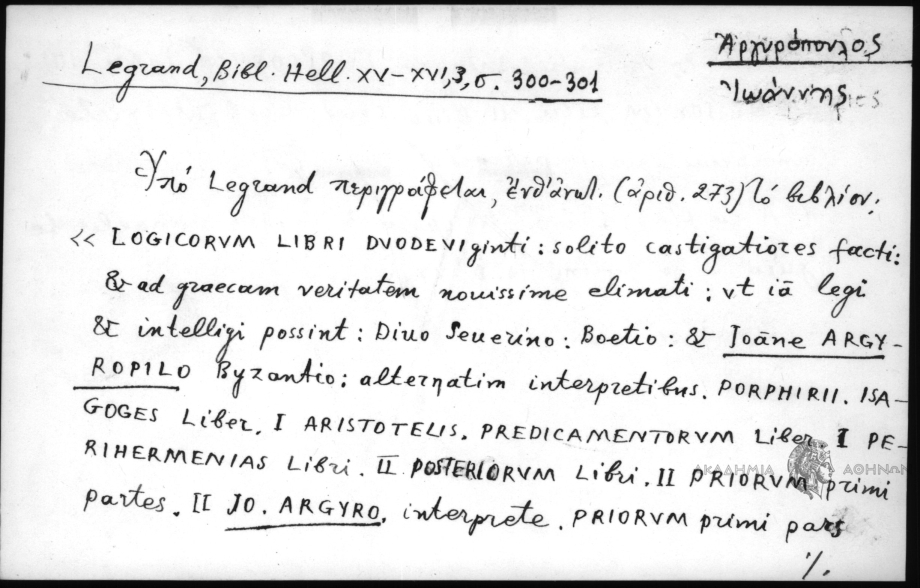 Ἀργυρόπουλος
Legrand, Bibl. Hell. XV-XVI, 3, σ. 300-301
Ἰωάννης
Ὑπό Legrand περιγράφεται, ἐνθ' ἀνωτ. (ἀριθ. 273) τό βιβλίον:
<< LOGICORVM LIBRI DVODEVIginti: solito castigatiores facti:
& ad graecam veritatem nouissime elimati; vt iā legi
& intelligi possint: Diuo Seuerino: Boetio: & Ioāne ARGY-
ROPILO Byzantio; alternatim interpretibus. PORPHIRII. ISA-
GOGES Liber. I ARISTOTELIS. PREDICAMENTORVM Liber. I PE-
RIHERMENIAS Libri. II POSTERIORVM Libri. II PRIORVM primi
ΑΚΑΔΗΜΙΑ ΑΘΗΝΩΝ
partes. II JO. ARGYRO. interprete. PRIORVM primi pars
%.